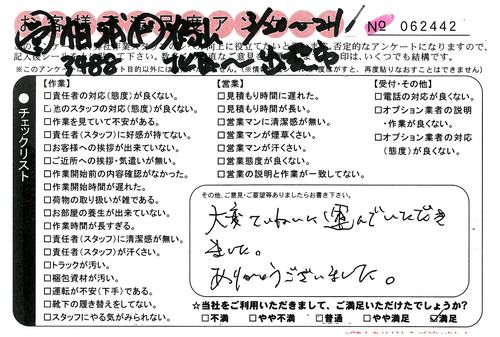 お客様満足度アンケート
No 062442
チェックリスト
【作業】
□責任者の対応(態度)が良くない。
□他のスタッフの対応(態度)が良くない。
□作業を見ていて不安がある。
□責任者(スタッフ)に好感が持てない。
□お客様への挨拶が出来ていない。
□ご近所への挨拶・気遣いが無い。
□作業開始前の内容確認がなかった。
□作業開始時間が遅れた。
□荷物の取り扱いが雑である。
□お部屋の養生が出来ていない。
□作業時間が長すぎる。
□責任者(スタッフ)に清潔感が無い。
□責任者(スタッフ)が汗くさい。
□トラックが汚い。
□梱包資材が汚い。
□運転が不安(下手)である。
□靴下の履き替えをしてない。
□スタッフにやる気がみられない。
【営業】
□見積もり時間に遅れた。
□見積もり時間が長い。
□営業マンに清潔感が無い。
□営業マンが煙草くさい。
□営業マンが汗くさい。
□営業態度が良くない。
□営業の説明と作業が一致してない。
【受付・その他】
□電話の対応が良くない。
□オプション業者の説明
・作業が良くない。
□オプション業者の対応
(態度)が良くない。
その他、ご意見・ご要望等ありましたらお書き下さい。
大変ていねいに運んでいただき
ました。
ありがとうございました。
☆当社をご利用いただきまして、ご満足いただけたでしょうか?
□不満 □やや不満 □普通 □やや満足 ☑満足